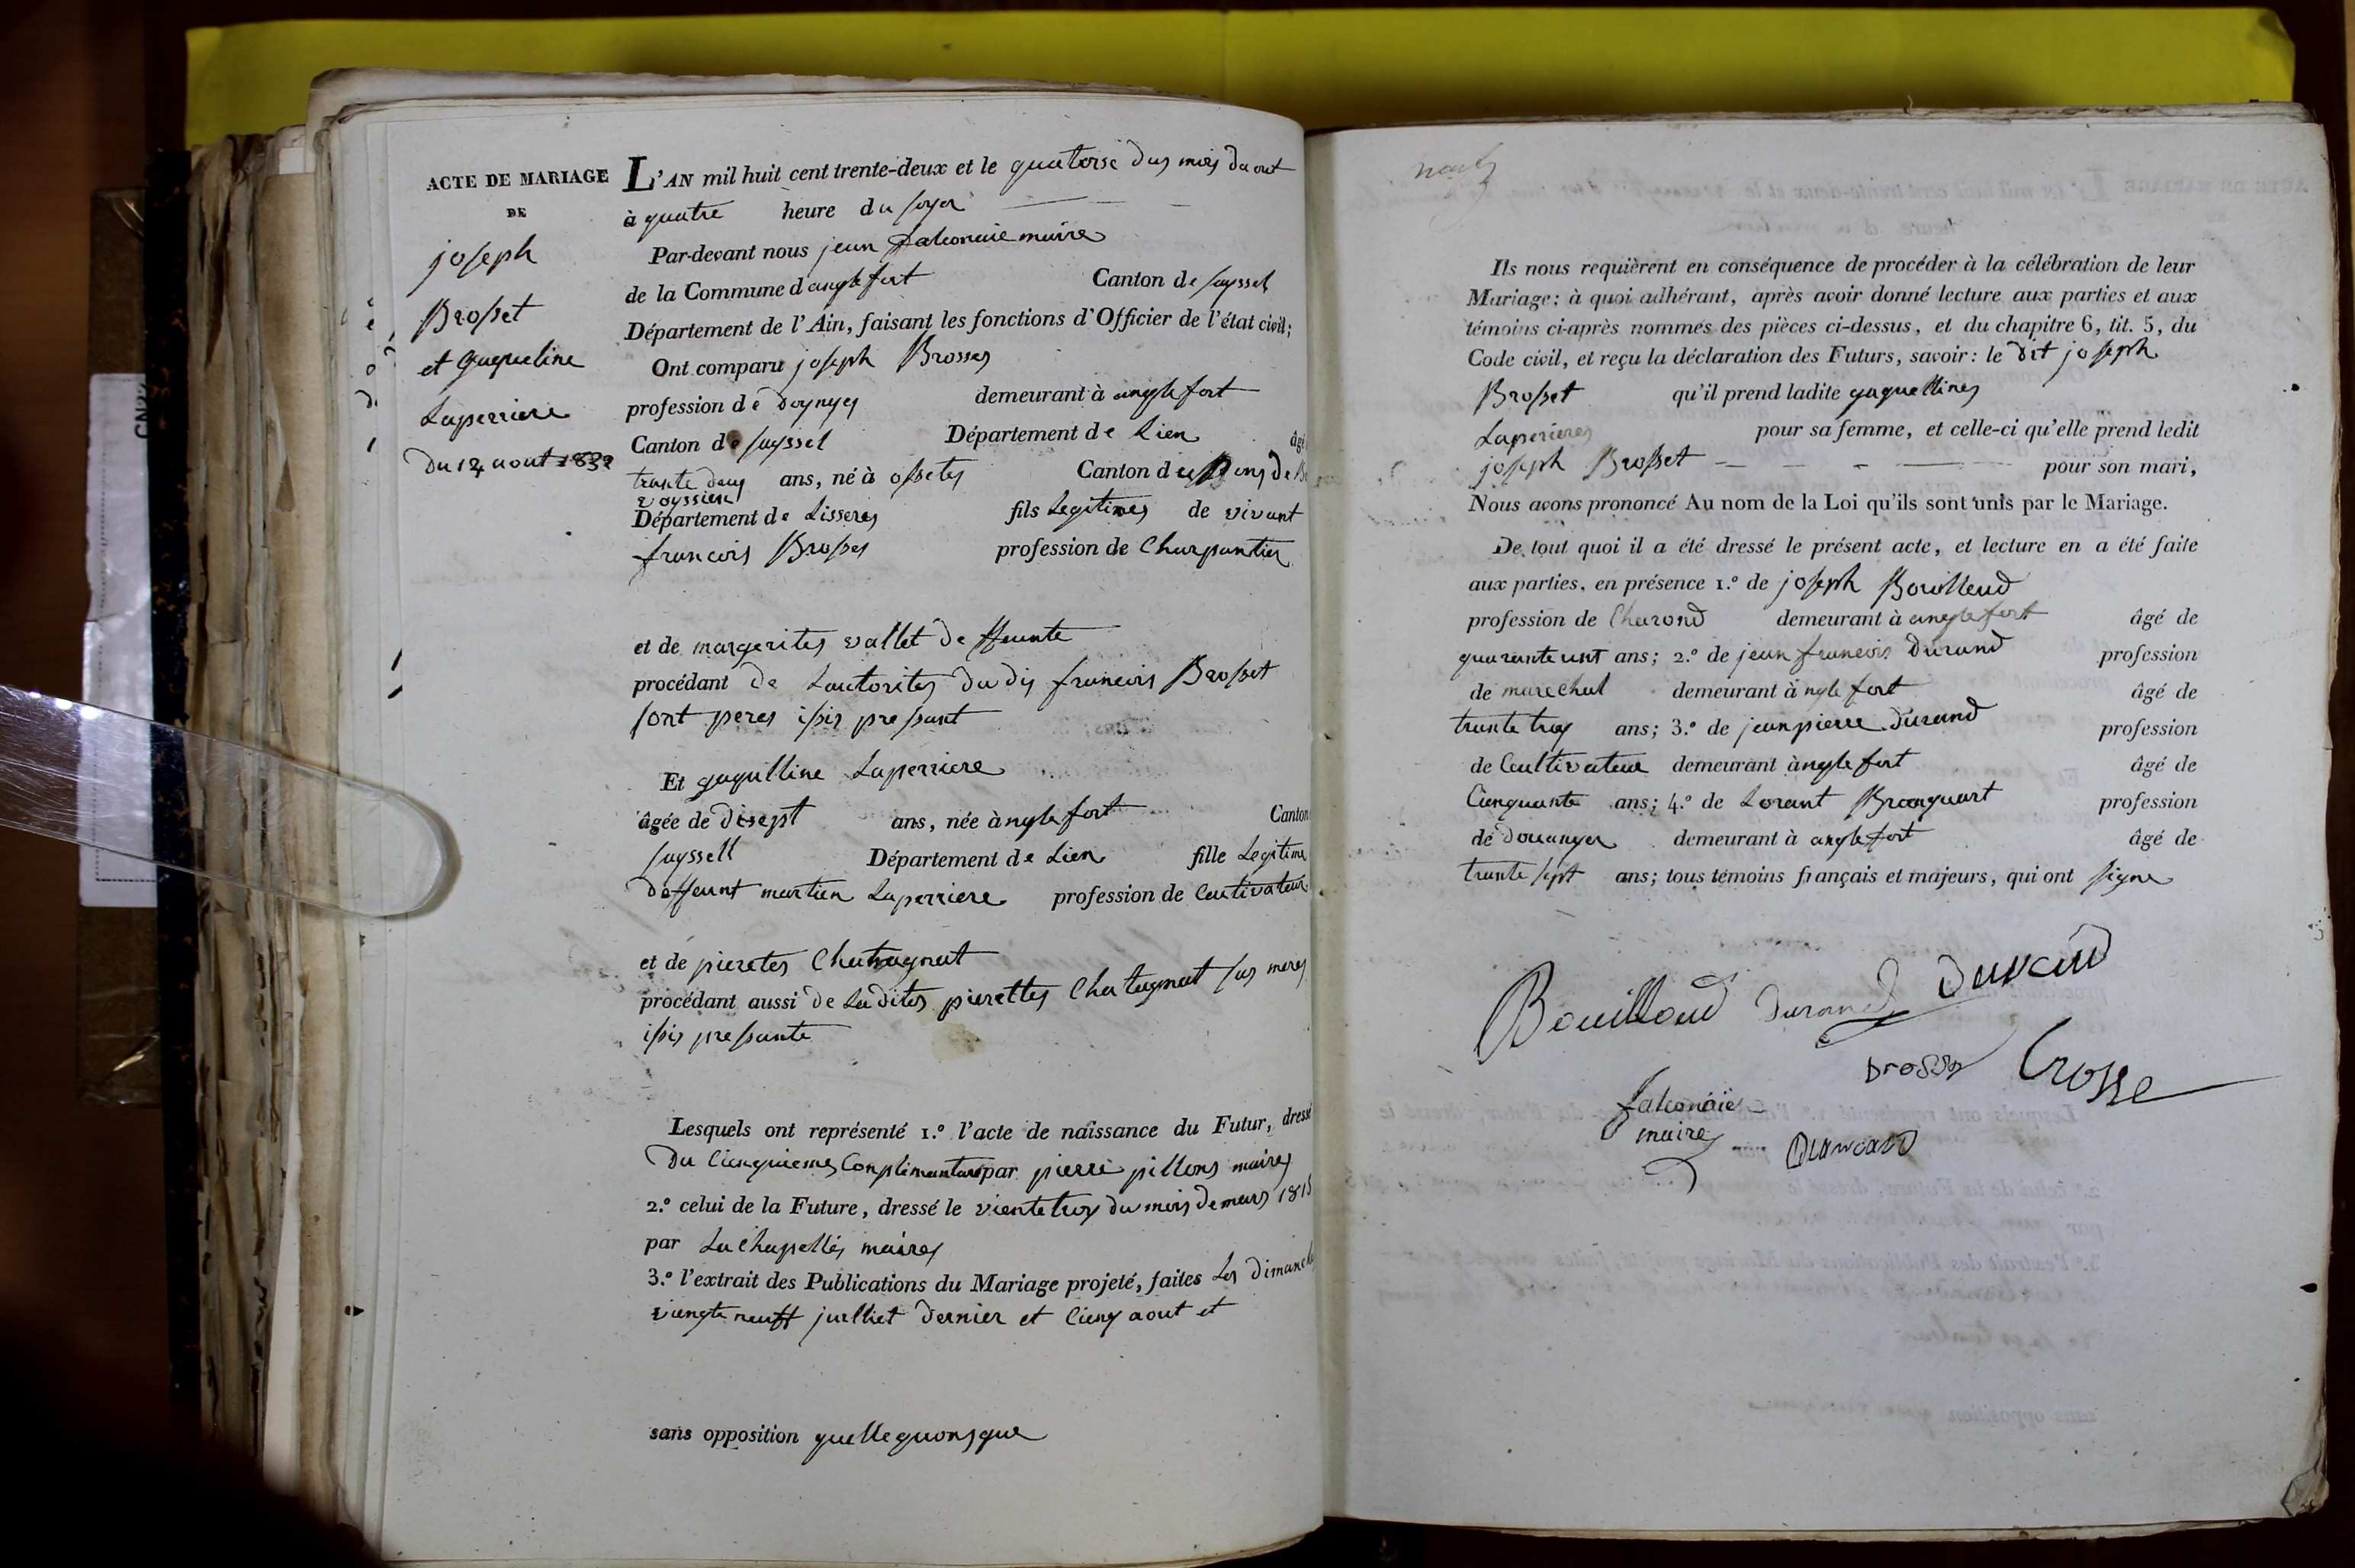 ACTE DE MARIAGE
DE
joseph
Brosset
et Gaqueline
Laperriere
Du 14 aout 1832
L'AN mil huit cent trente-deux et le quatorse dus mois daout
à quatre heure du soyer
Par-devant nous jean falconnie maire
de la Commune d anglefort Canton de Seyssel
Département de l'Ain, faisant les fonctions d'Officier de l'état civil;
Ont comparu joseph Brosses
profession de demeurant à anglefort
Canton de Seyssel Département de Lien âgé
trante deuy ans, né à ossetes Canton de
voyssien
Département de Lisseres fils Legitimes de vivant
francois Brosses profession de Charpantier
et de margerites vallet deffeunte
procédant de Lautorites dudis francois Brosset
sont peres issis pressant
Et gaquilline Laperriere
âgée de disept ans, née à nglefort Canton
Seyssell Département de Lien fille Legitime
deffeunt martien Laperriere profession de Cultivateur
et de pieretes Chatagnat
procédant aussi de Ladites pierettes Chatagnat sas meres
issis pressante
Lesquels ont représenté 1.º l'acte de naissance du Futur, dressé
Du Cienquiemes Complimentaire par pierre pillons maires
2.º celui de la Future, dressé le vientetroy du mois de mars 1815
par La Chapelles maires
3.º l'extrait des Publications du Mariage projeté, faites Les dimanche
viengte neuff juilliet dernier et Cienq aout et
sans opposition quellequonsque
Ils nous requièrent en conséquence de procéder à la célébration de leur
Mariage; à quoi adhérant, après avoir donné lecture aux parties et aux
témoins ci-après nommés des pièces ci-dessus, et du chapitre 6, tit. 5, du
Code civil, et reçu la déclaration des Futurs, savoir: le dit joseph
Brosset qu'il prend ladite gaquellines
Laperieres pour sa femme, et celle-ci qu'elle prend ledit
joseph Brosset pour son mari,
Nous avons prononcé Au nom de la Loi qu'ils sont unis par le Mariage.
De tout quoi il a été dressé le présent acte, et lecture en a été faite
aux parties, en présence 1.º de joseph Bouilloud
profession de Charond demeurant à anglefort âgé de
quaranteunt ans; 2.º de jean francois Durand profession
de marechal demeurant à nglefort âgé de
trante troy ans; 3.º de jeanpierre Durand profession
de Cultivateur demeurant à nglefort âgé de
Cienquante ans; 4.º de Lorant Branquart profession
de douanyer demeurant à anglefort âgé de
trante sept ans; tous témoins français et majeurs, qui ont signe
Bouilloud Durand Durand
Brosse
falconnie
maire